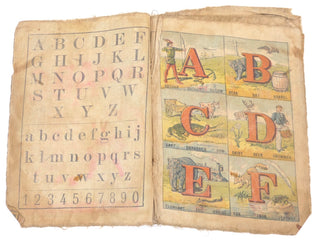 ABCDEF
GHIJKL
MNOPQR
STUVW
XYZ
abcdefghij
klmnopqrs
tuvwxyz
1234567890
A
B
C
D
E
F